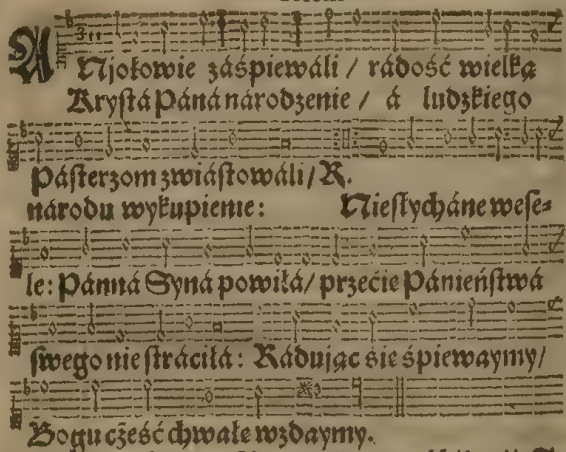 ANjołowie záśpiewáli / rádość wielką
Krystá Páná národzenie / á ludzkiego
Pásterzom zwiástowáli / R.
národu wykupienie: Niesłycháne wese=
le: Pánná Syná powiłá / przećie Pánieństwá
swego nie stráciłá: Rádując śie śpiewaymy /
Bogu cześć chwałe wzdaymy.